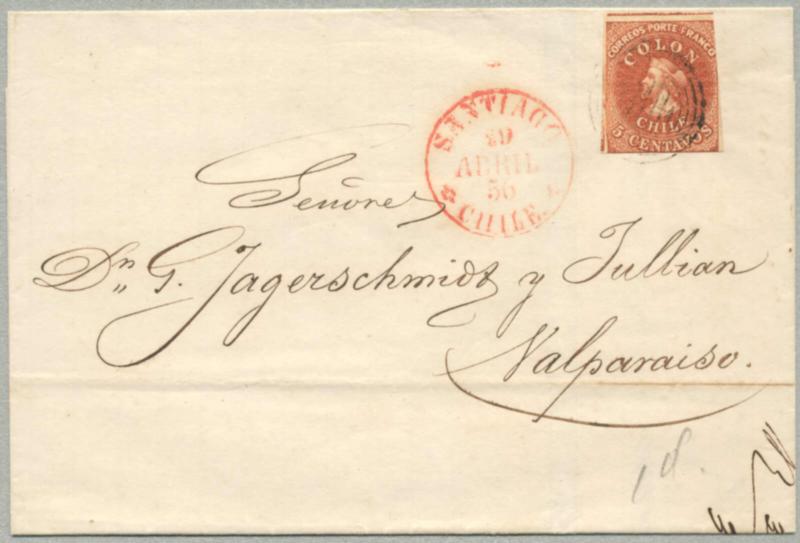 CORREOS PORTE FRANCO
COLON
CHILE
5 CENTAVOS
SANTIAGO
29
ABRIL
56
CHILE
Señores
Dn G. Jagerschmidt y Jullian
Valparaiso.